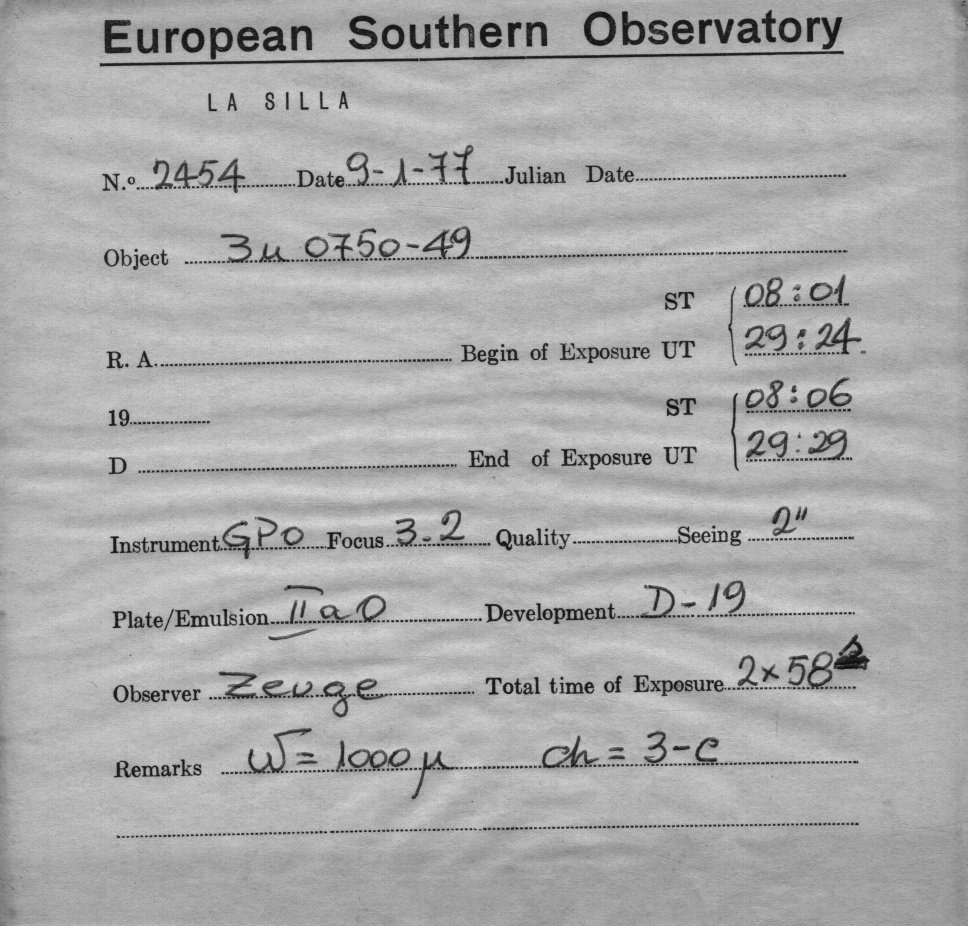 European Southern Observatory
LA SILLA
N.º 2454 Date 9-1-77 Julian Date
Object 3u 0750-49
ST 08:01
R. A. Begin of Exposure UT 29:24
19 ST 08:06
D End of Exposure UT 29:29
Instrument GPO Focus 3.2 Quality Seeing 2"
Plate/Emulsion IIaO Development D-19
Observer Zeuge Total time of Exposure 2×58
Remarks W = 1000 μ ch = 3-c